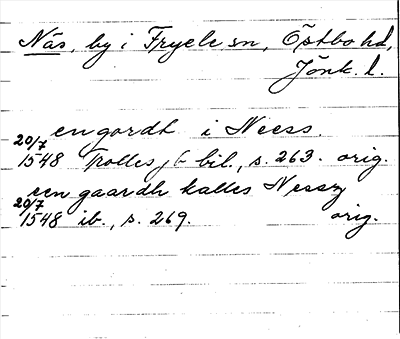 Näs, by i Fryele sn, Östbo hd,
Jönk. l.
en gordh i Neess.
20/7 1548 Trolles jb bil., s. 263. orig.
een gaardh kalles Nessz
20/7 1548 ib., s. 269. orig.